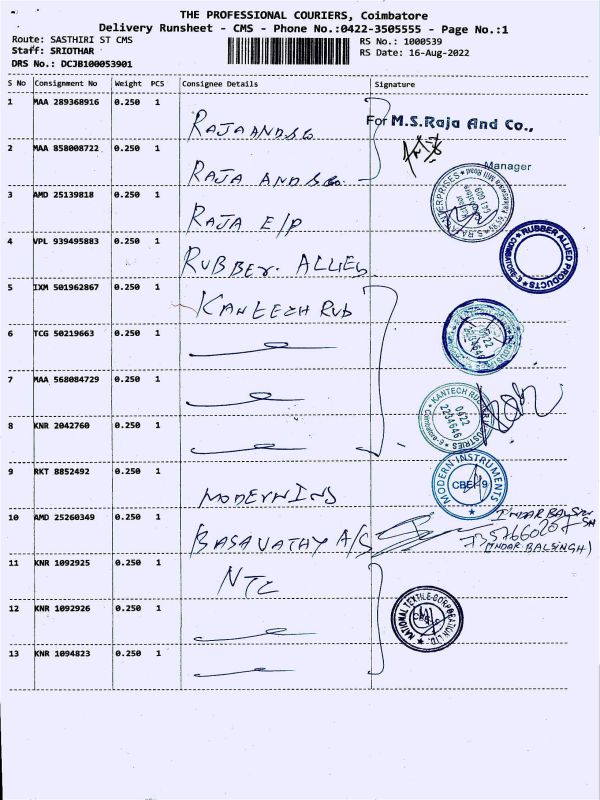 THE PROFESSIONAL COURIERS, Coimbatore
Delivery Runsheet - CMS - Phone No.:0422-3505555 - Page No.:1
Route: SASTHIRI ST CMS
RS No.: 1000539
Staff: SRIOTHAR
RS Date: 16-Aug-2022
DRS No.: DCJB100053901
S No Consignment No Weight PCS Consignee Details Signature
1 MAA 289368916 0.250 1 RAJA AND CO
For M.S.Raja And Co.,
Manager
2 MAA 858008722 0.250 1 RAJA AND CO.
3 AMD 25139818 0.250 1 RAJA E/P
4 VPL 939495883 0.250 1 RUBBER. ALLIED
RUBBER ALLIED PRODUCTS
5 IXM 501962867 0.250 1 KANTECH RUB
6 TCG 50219663 0.250 1
7 MAA 568084729 0.250 1
8 KNR 2042760 0.250 1
KANTECH RUBBER INDUSTRIES
0422
2234646
9 RKT 8852492 0.250 1 MODERN INS
MODERN INSTRUMENTS
CBE-9
10 AMD 25260349 0.250 1 BASAVATHY A/S
(INDAR BALSINGH)
11 KNR 1092925 0.250 1 NTC
12 KNR 1092926 0.250 1
NATIONAL TEXTILE CORPORATION LTD.
13 KNR 1094823 0.250 1